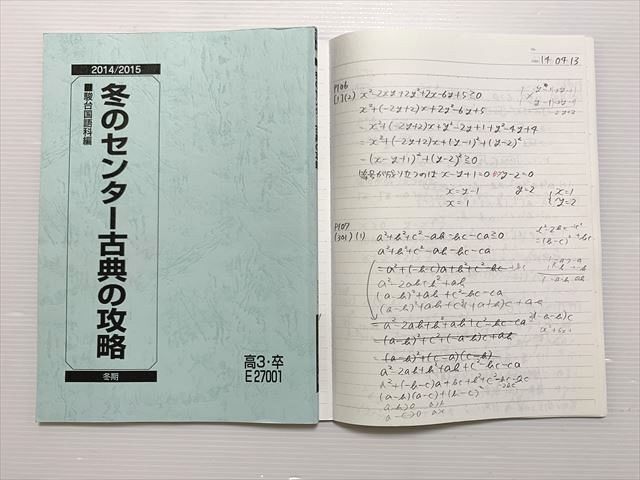 2014/2015
冬のセンター古典の攻略
■駿台国語科編
冬期
高3・卒
E27001
14.04.13
P106
[1](2) x²-2xy+2y²+2x-6y+5≧0
x²+(-2y+2)x+2y²-6y+5
=x²+(-2y+2)x+y²-2y+1+y²-4y+4
=x²+(-2y+2)x+(y-1)²+(y-2)²
=(x-y+1)²+(y-2)²≧0
等号が成り立つのは x-y+1=0 y-2=0
x=y-1 y=2 x=1
x=1 y=2
P107
(301)(1) a²+b²+c²-ab-bc-ca≧0
a²+b²+c²-ab-bc-ca
=a²+(-b-c)a+b²+c²-bc
a²-2ab+b²+ab
(a-b)²+ab+c²-bc-ca
=a²-2ab+b²+ab+c²-bc-ca
=(a-b)²+c²+(-a-b)c+ab
=(a-b)²+(c-a)(c-b)
a²-2ab+b²+ab+c²-bc-ca
(a-b)(a-c)+(b-c)²